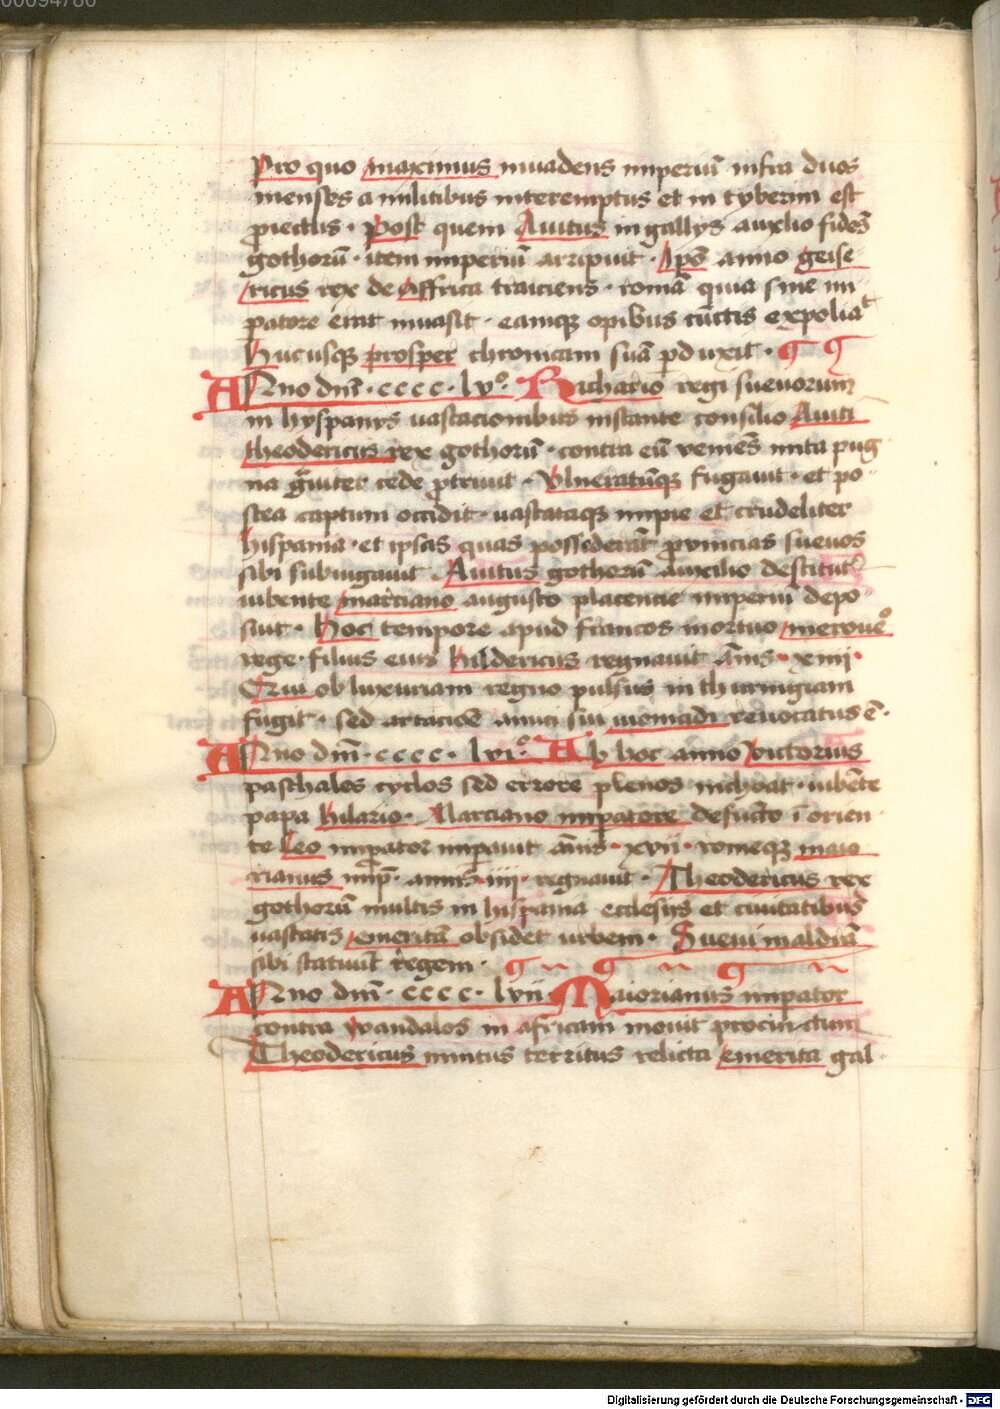 00094780
Pro quo maximus inuadens imperiū infra duos
menses a militibus interemptus et in tyberim est
proiectus · Post quem Auitus in gallys auxlio fides
gothorū · item imperiū arripuit · Ips̄ anno geise
ricus rex de Affrica traiciens · romā quia sine im
patore erat inuasit · eamqꝫ opibus cūctis expoliat
Hucusqꝫ prosper chronicam suā pduxit ·
Anno dm̄ · cccc · lvº · Richario regi sueuorum
in hyspanys uastacionibus instante consilio Auiti
theodericus rex gothorū · contra eū venies̄ inita pug
na grauiter cede protriuit · Vlneratūqꝫ fugauit · et po
stea captum occidit · uastataqꝫ impie et crudeliter
hispania · et ipsas quas possederāt prouincias sueuos
sibi subiugauit · Auitus gothorū auxilio destitutꝰ
iubente marciano augusto placencie imperiū depo
suit · Hoc tempore apud francos mortuo meroueº
rege · filius eius hildericus regnauit ānis · xxiiij ·
Qui ob luxuriam regno pulsus in thuringiam
fugit · sed amici sui uiomadi reuocatus ē ·
Anno dm̄ · cccc · lviº · Ab hoc anno victorius
paschales cyclos sed errore plenos inchoat · iubēte
papa hilario · Marciano impatore defūcto ī orien
te Leo impator impauit ānis · xvii · romeqꝫ maio
rianus imp̄ · annis · iiij · regnauit · Theodericus rex
gothorū multis in hispania ecclesijs et ciuitatibus
uastatis emeritā obsidet urbem · Sueui maldrā
sibi statuūt regem ·
Anno dm̄ · cccc · lvii Maiorianus impator
contra wandalos in africam mouit procinctum
Theodericus territus relicta emerita gal
Digitalisierung gefördert durch die Deutsche Forschungsgemeinschaft · DFG